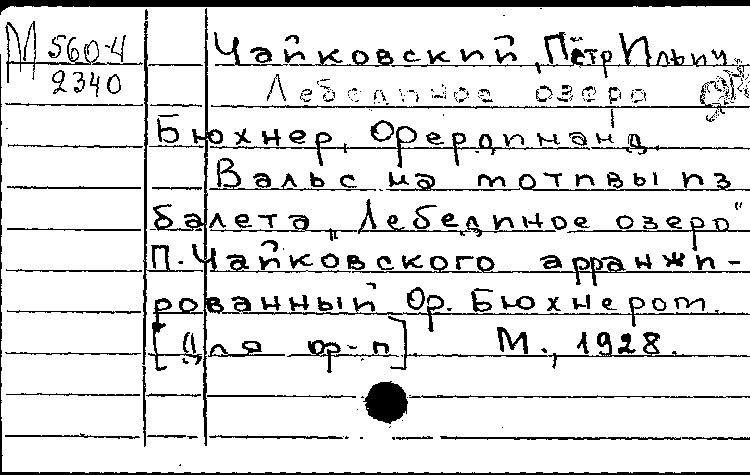 М 560-4
2340
Чайковский, Пётр Ильич.
Лебединое озеро
Бюхнер, Фердинанд.
Вальс на мотивы из
балета „Лебединое озеро"
П. Чайковского аранжи-
рованный Ф. Бюхнером.
[Для ф-п]. М., 1928.